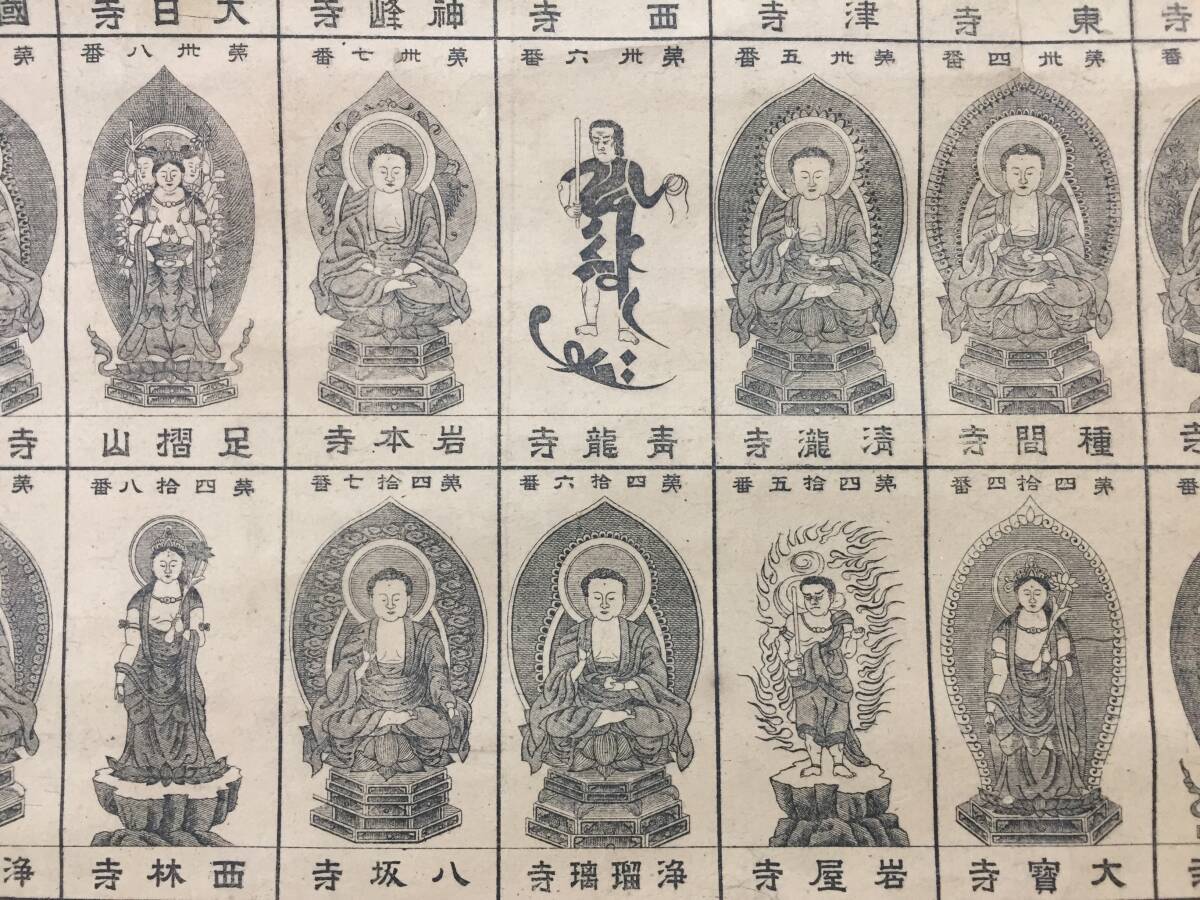 寺 東寺 津寺 西寺 神峰寺 大日寺 國
番 苐卅四番 苐卅五番 苐卅六番 苐卅七番 苐卅八番 苐
寺 種間寺 清瀧寺 青龍寺 岩本寺 足摺山 寺
番 苐四拾四番 苐四拾五番 苐四拾六番 苐四拾七番 苐四拾八番 苐
寺 大寶寺 岩屋寺 浄瑠璃寺 八坂寺 西林寺 浄